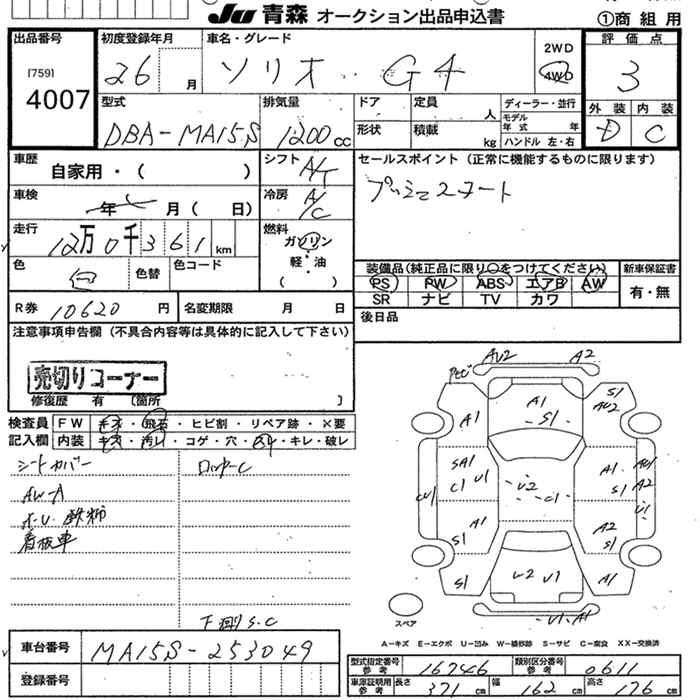 JU 青森 オークション出品申込書
①商組用
出品番号
[759]
4007
初度登録年月
26 月
車名・グレード
ソリオ G4
2WD
4WD
評価点
3
外装 内装
D C
型式
DBA-MA15S
排気量
1200cc
ドア
形状
定員 人
積載 kg
ディーラー・並行
モデル年式 年
ハンドル 左・右
車歴
自家用・( )
車検
年 月( 日)
走行
12万0千361km
色
白
色替
色コード
シフト
A/T
冷房
A/C
燃料
ガソリン
軽・油
( )
セールスポイント(正常に機能するものに限ります)
装備品(純正品に限り○をつけてください)
PS PW ABS エアB AW
SR ナビ TV カワ
新車保証書
有・無
後日品
R券 10620 円
名変期限 月 日
注意事項申告欄(不具合内容等は具体的に記入して下さい)
売切りコーナー
修復歴 有 〔箇所 〕
検査員記入欄
FW キズ・飛石・ヒビ割・リペア跡・×要
内装 キズ・汚レ・コゲ・穴・スレ・キレ・破レ
シートカバー
AW-A
看板車
下廻りS.C
AU2 A2
A1 A1 S1 S1 AU2
SA1 C1 U1 U2 C1 A1 S1 A2 U1
CU1
A1 S1 A2 S1
S1 U2 U1 A1
U1.A1
スペア
A-キズ E-エクボ U-凹み W-補修跡 S-サビ C-腐食 XX-交換済
車台番号 MA15S-253049
登録番号
型式指定番号 参考 16746
類別区分番号 参考 0611
車庫証明用 参考 長さ 371 cm 幅 162 cm 高さ 176 cm